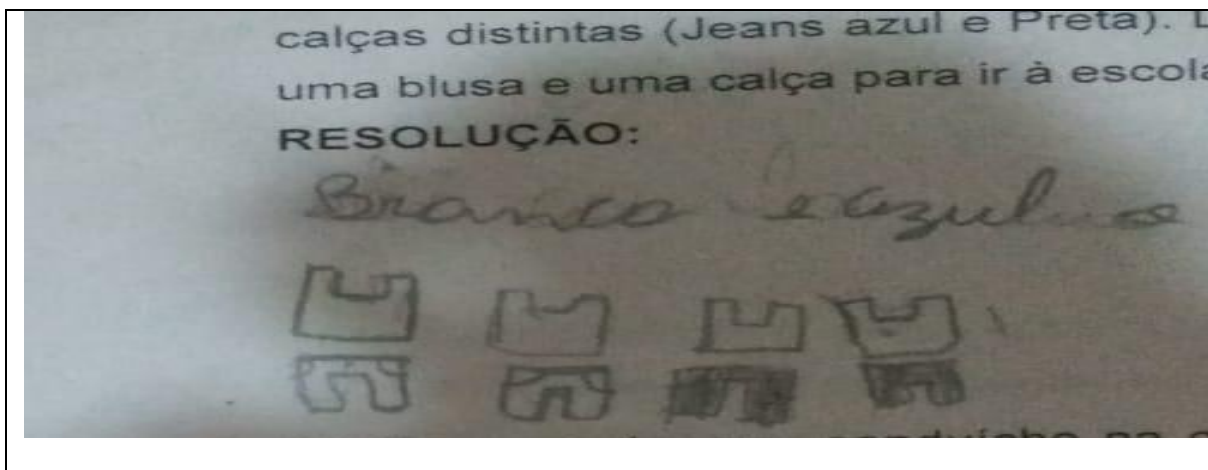 calças distintas (Jeans azul e Preta).
uma blusa e uma calça para ir à escola
RESOLUÇÃO:
Branco e azul